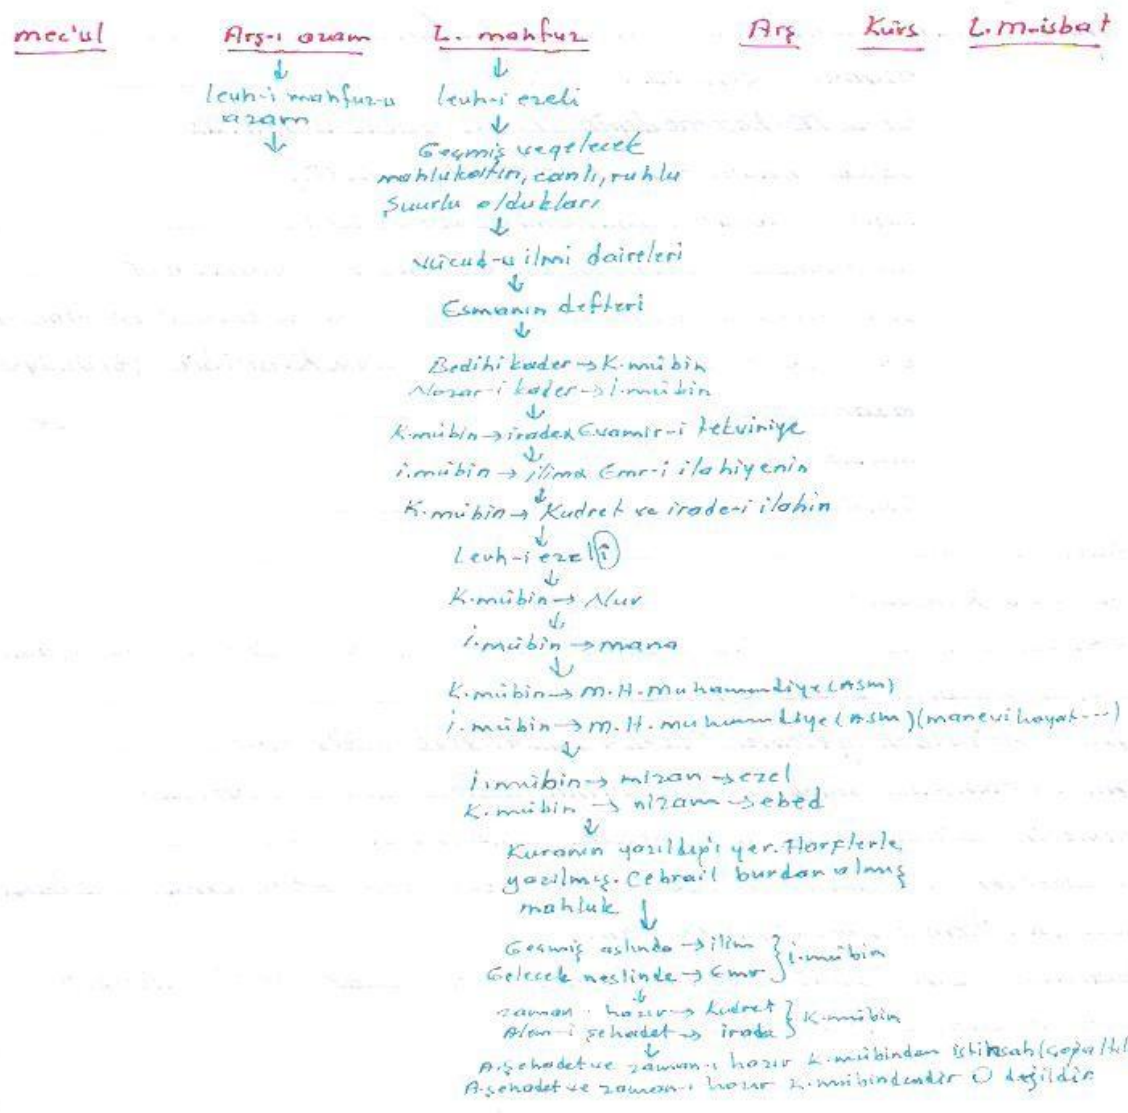 mec'ul Arş-ı azam L. mahfuz Arş Kürs L. M-isbat
↓ ↓
levh-i mahfuz-u levh-i ezeli
azam ↓
↓ Geçmiş ve gelecek
mahlukatın, canlı, ruhlu
Şuurlu oldukları
↓
Vücud-u ilmi daireleri
↓
Esmanın defteri
↓
Bedihi kader → K.mübin
Nazar-i kader → i.mübin
↓
K.mübin → irade Evamir-i tekviniye
↓
i.mübin → ilim Emr-i ilahiyenin
↓
K.mübin → Kudret ve irade-i ilahin
↓
Levh-i ezel(î)
↓
K.mübin → Nur
↓
i.mübin → mana
↓
K.mübin → M.H.Muhammediye (ASM)
i.mübin → M.H.muhammediye (ASM) (manevi hayat---)
↓
i.mübin → mizan → ezel
K.mübin → nizam → ebed
↓
Kuranın yazıldığı yer. Harflerle
yazılmış. Cebrail burdan almış
mahluk ↓
Geçmiş aslında → ilim } i.mübin
Gelecek neslinde → Emr
↓
zaman-ı hazır → kudret } K.mübin
Alem-i şehadet → irade
↓
A.şehadet ve zaman-ı hazır K.mübinden istinsah
A.şehadet ve zaman-ı hazır K.mübindendir O değildir